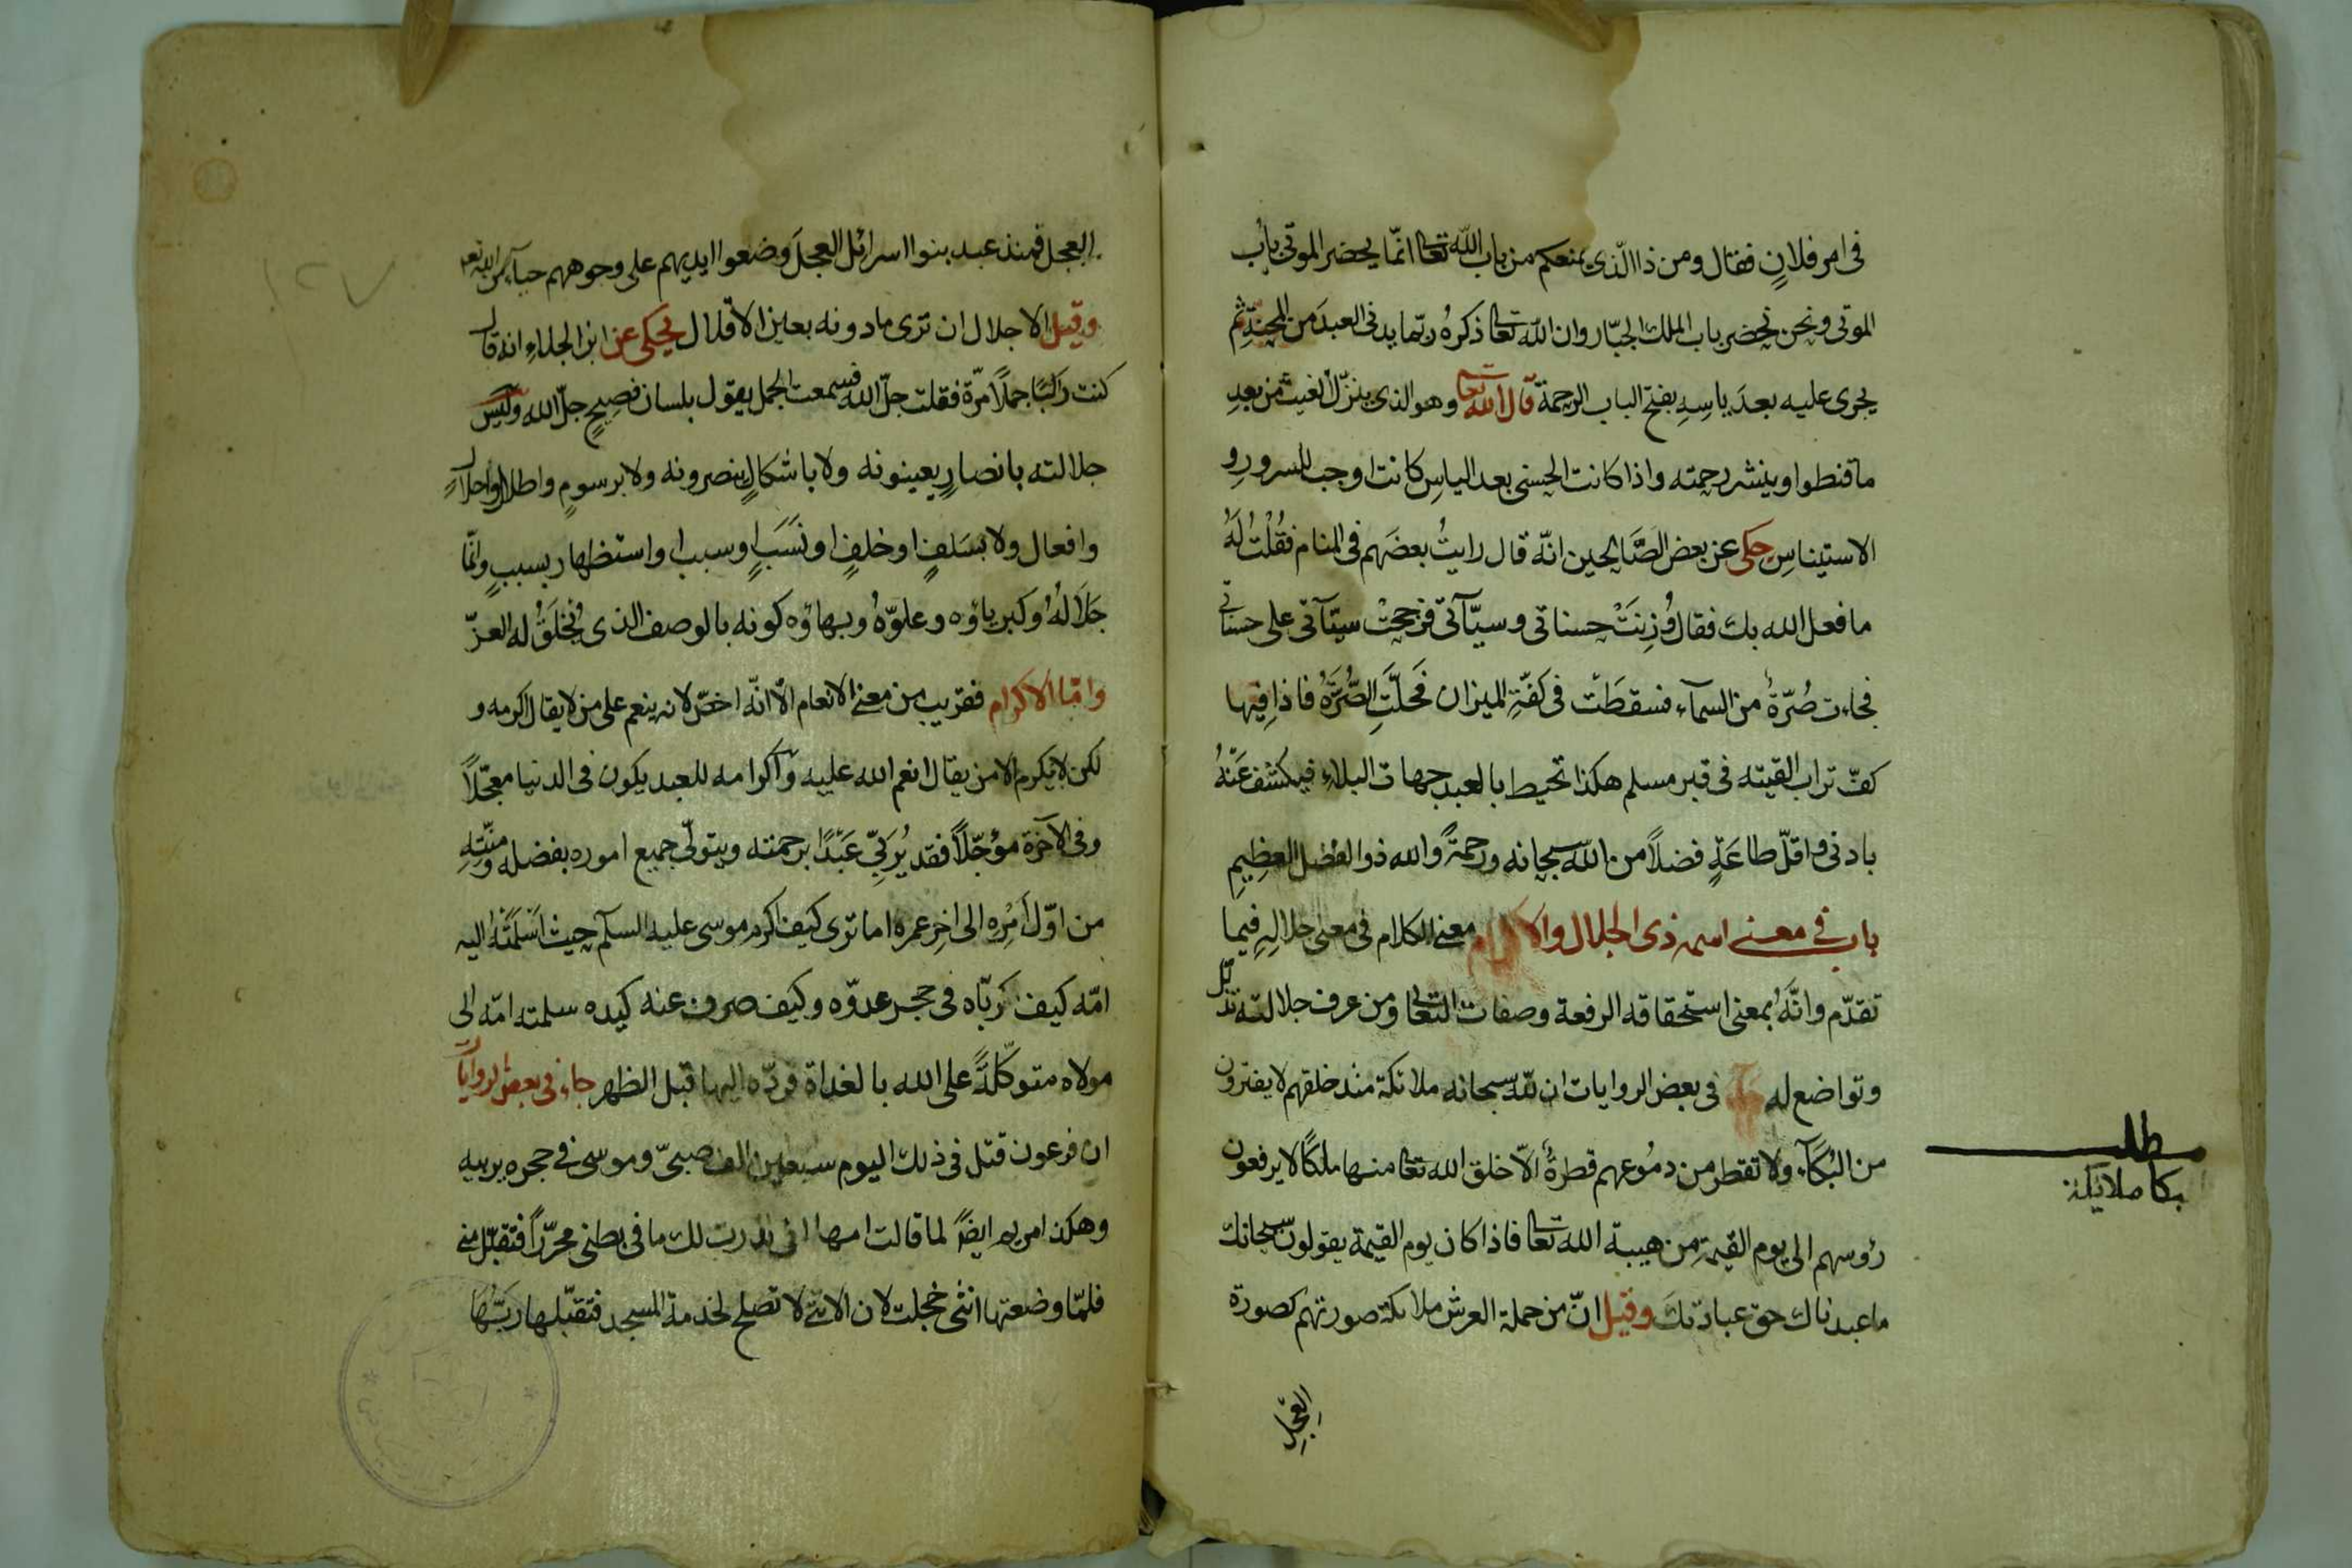 فى امر فلانٍ فقال ومن ذا الّذى يمنعكم من باب اللّه تعا انّما يحضر الموتى باب
الموتى ونحن نحضر باب الملك الجبّار وان للّه تعا ذكرهُ ربّما يدنى العبدَ من المحنةِ ثم
يجرى عليه بعدَ ياسِهِ بفتح الباب الرحمة قال اللّه تعا وهو الذى ينزّل الغيث من بعدِ
ما قنطوا وينشر رحمته واذا كانت الحسنى بعد الياسِ كانت اوجب للسرورِ و
الاستيناسِ حكى عن بعض الصَّالحين انّه قال رايتُ بعضَهم فى المنام فقُلْتُ لَهُ
ما فعل الله بك فقال وُزِنَتْ حسناتى وسيّآتى فرجحتْ سيّآتى على حسناتى
فجاءت صُرّةٌ من السمآء فسقطَتْ فى كفّةِ الميزان فحلّتِ الصُّرَّةُ فاذا فيها
كفّ تراب القيته فى قبر مسلم هكذا تحيط بالعبد جهات البلاءِ فيكشف عَنْهُ
بادنى واقلّ طاعَةٍ فضلاً من اللّه سبحانه ورحمةً والله ذوا الفضل العظِيمِ
باب فى معنى اسمه ذى الجلال والاكرام معنى الكلام فى معنى جلالِهِ فيما
تقدّم وانَّهُ بمعنى استحقاقه الرفعة وصفات التعا ومن عرف جلالته تذلّل
وتواضع له فى بعض الروايات ان للّه سبحانه ملائكة منذ خلقهم لا يفترون
من البُكآء ولا تقطر من دمُوعهم قطرةٌ الاّ خلق الله تعا منها ملكًا لا يرفعون
رؤسهم الى يوم القيمةِ من هيبة الله تعا فاذا كان يوم القيمة يقولون سبحانك
ما عبدناك حق عبادتك وقيل انّ من حملة العرش ملائكة صورتهم كصورة
العجل
مطلب
بكا ملايكه
العجل فمنذ عبد بنوا اسرائل العجلَ وضعوا ايديهم على وجوههم حياءً من اللّه تعا
وقيل الاجلال ان ترى ما دونه بعين الاقلال يحكى عن ابن الجلاءِ انه قال
كنت راكبًا جملاً مرّة فقلت جلّ الله فسمعت الجمل يقول بلسان فصيحٍ جلّ الله وليس
جلالته بانصارٍ يعينونه ولا باشكالٍ ينصرونه ولا برسومٍ واطلالٍ
وافعال ولا بسَلفٍ او خلفٍ او نَسَبٍ وسببا واستظهار بسببٍ وانّما
جَلَالُهُ وكبرياؤه وعلوّهُ وبهاؤه كونه بالوصف الذى يُخلَقُ له العزّ
وامّا الاكرام فقريب من معنى الانعام الاّ انّه اخصّ لانه ينعم على من لا يقال اكرمه و
لكن لا يكرم الا من يقال انعم الله عليه واكرامه للعبد يكون فى الدنيا معجّلاً
وفى الآخرة مؤجّلاً فقد يُربّى عَبْدًا برحمته ويتولّى جميع اموره بفضله ومنّتِهِ
من اوّل اَمْرِه الى اخِرِ عمره اما ترى كيف اكرم موسى عليه السلم حيث اَسْلَمَتْهُ اليه
امّه كيف ربّاه فى حجر عدوّه وكيف صرف عنه كيده سلمته امّه الى
مولاه متوكّلةً على الله بالغداة فردّه اليها قبل الظهر جاء فى بعض الروايات
ان فرعون قتل فى ذلك اليوم سبعين الف صبىّ وموسى فى حجره يربيه
وهكذا مريم ايضًا لما قالت امها انى نذرت لك ما فى بطنى محرّرًا فتقبّل منى
فلمّا وضعتها انثى خجلت لان الانثى لا تصلح لخدمة المسجد فتقبّلها ربّها